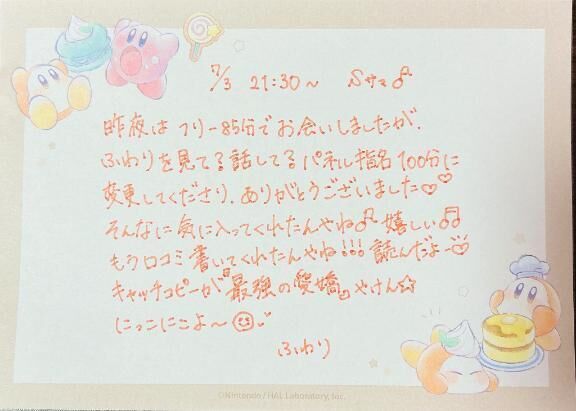 7/3 21:30〜 Sサマ♪
昨夜はフリー85分でお会いしましたが、
ふわりを見て?話して?パネル指名100分に
変更してくださり、ありがとうございました♡♡
そんなに気に入ってくれたんやね♪嬉しい♬
もう口コミ書いてくれたんやね!!!読んだよー♡
キャッチコピーが『最強の愛嬌』やけん☆
にっこにこよ〜☺♪
ふわり
©Nintendo / HAL Laboratory, Inc.